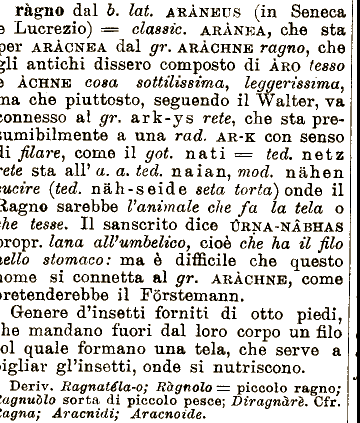 ràgno dal b. lat. ARÀNEUS (in Seneca
e Lucrezio) = classic. ARÀNEA, che sta
per ARÀCNEA dal gr. ARÀCHNE ragno, che
gli antichi dissero composto di ÀRO tesso
e ÀCHNE cosa sottilissima, leggerissima,
ma che piuttosto, seguendo il Walter, va
connesso al gr. ark-ys rete, che sta pre-
sumibilmente a una rad. AR-K con senso
di filare, come il got. nati = ted. netz
rete sta all' a. a. ted. naian, mod. nähen
cucire (ted. näh-seide seta torta) onde il
Ragno sarebbe l'animale che fa la tela o
che tesse. Il sanscrito dice ÛRṆA-NÂBHAS
propr. lana all'umbelico, cioè che ha il filo
nello stomaco: ma è difficile che questo
nome si connetta al gr. ARÀCHNE, come
pretenderebbe il Förstemann.
Genere d'insetti forniti di otto piedi,
che mandano fuori dal loro corpo un filo
col quale formano una tela, che serve a
pigliar gl'insetti, onde si nutriscono.
Deriv. Ragnatéla-o; Ràgnolo = piccolo ragno;
Ragnuòlo sorta di piccolo pesce; Diragnàrè. Cfr.
Ragna; Aracnidi; Aracnoide.